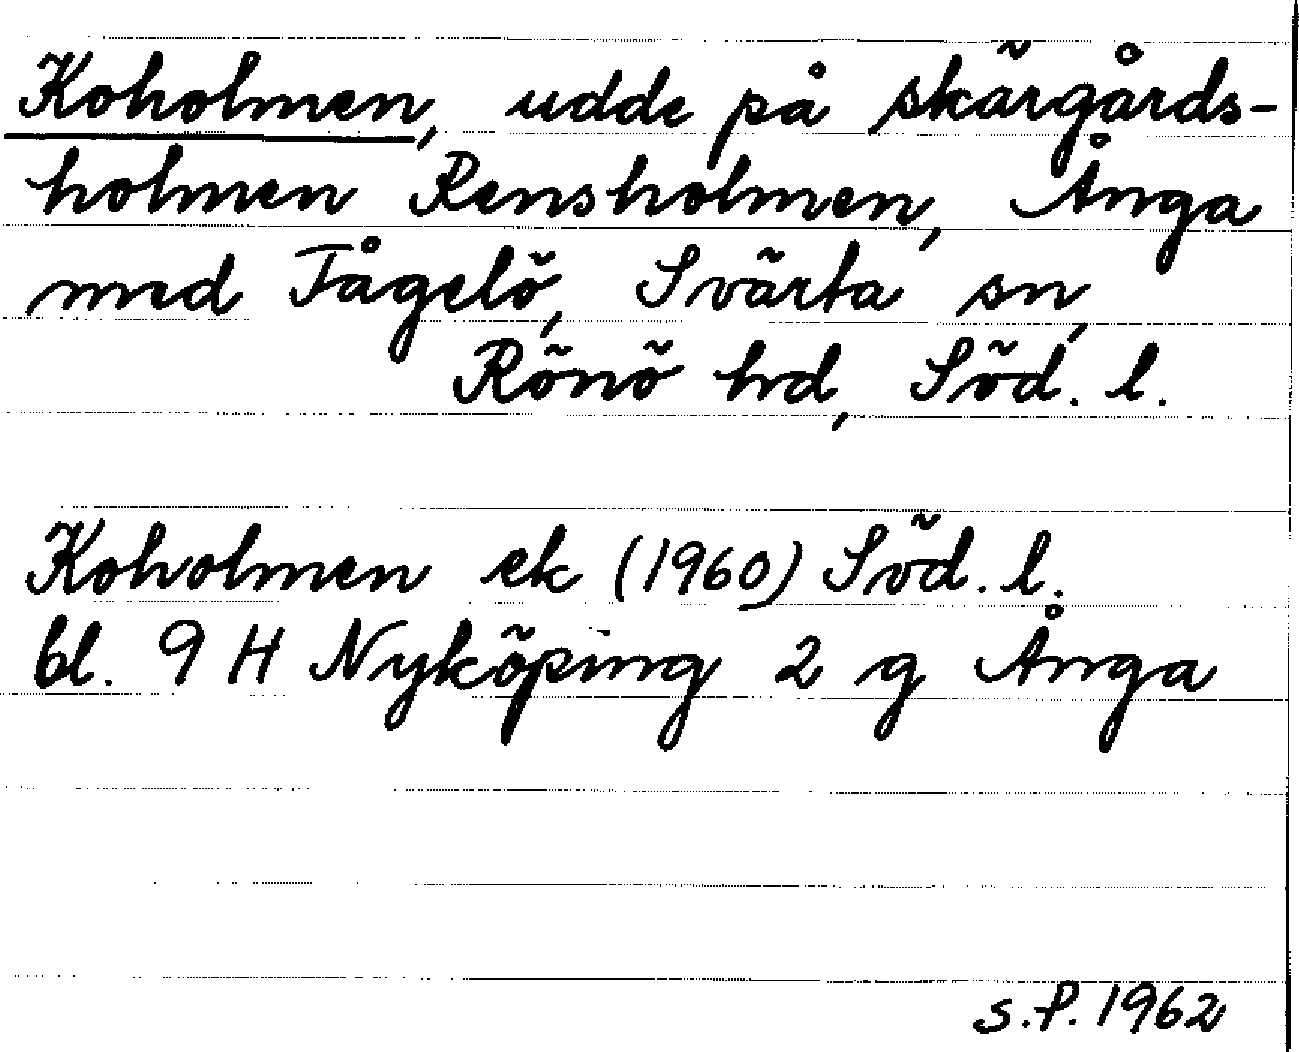 Koholmen, udde på skärgårds-
holmen Rensholmen, Ånga
med Tågelö, Svärta sn,
Rönö hd, Söd. l.
Koholmen ek (1960) Söd. l.
bl. 9 H Nyköping 2 g Ånga
S.P. 1962